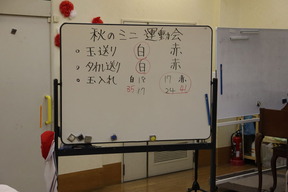 秋のミニ運動会
○玉送り 白 赤
○タオル送り 白 赤
○玉入れ 白18 17赤
35 17 24 41